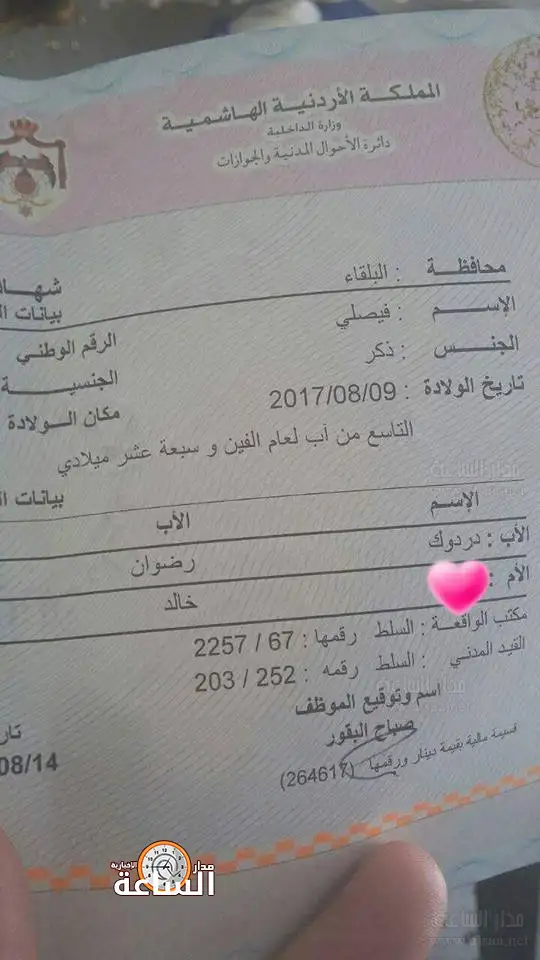 المملكة الأردنية الهاشمية
وزارة الداخلية
دائرة الأحوال المدنية والجوازات
محافظة : البلقاء
شها
الإسم : فيصلي
بيانات ا
الجنس : ذكر
الرقم الوطني
تاريخ الولادة : 2017/08/09
الجنسية
مكان الولادة
التاسع من آب لعام الفين و سبعة عشر ميلادي
بيانات ا
الإسم الأب
الأب : دردوك رضوان
الأم : خالد
مكتب الواقعة : السلط رقمها : 67 / 2257
القيد المدني : السلط رقمه : 252 / 203
اسم وتوقيع الموظف
صباح البقور
تار
08/14
قسيمة مالية بقيمة دينار ورقمها (264617)
مدار الساعة الاخبارية
مدار الساعة
مدار الساعة
مدار الساعة